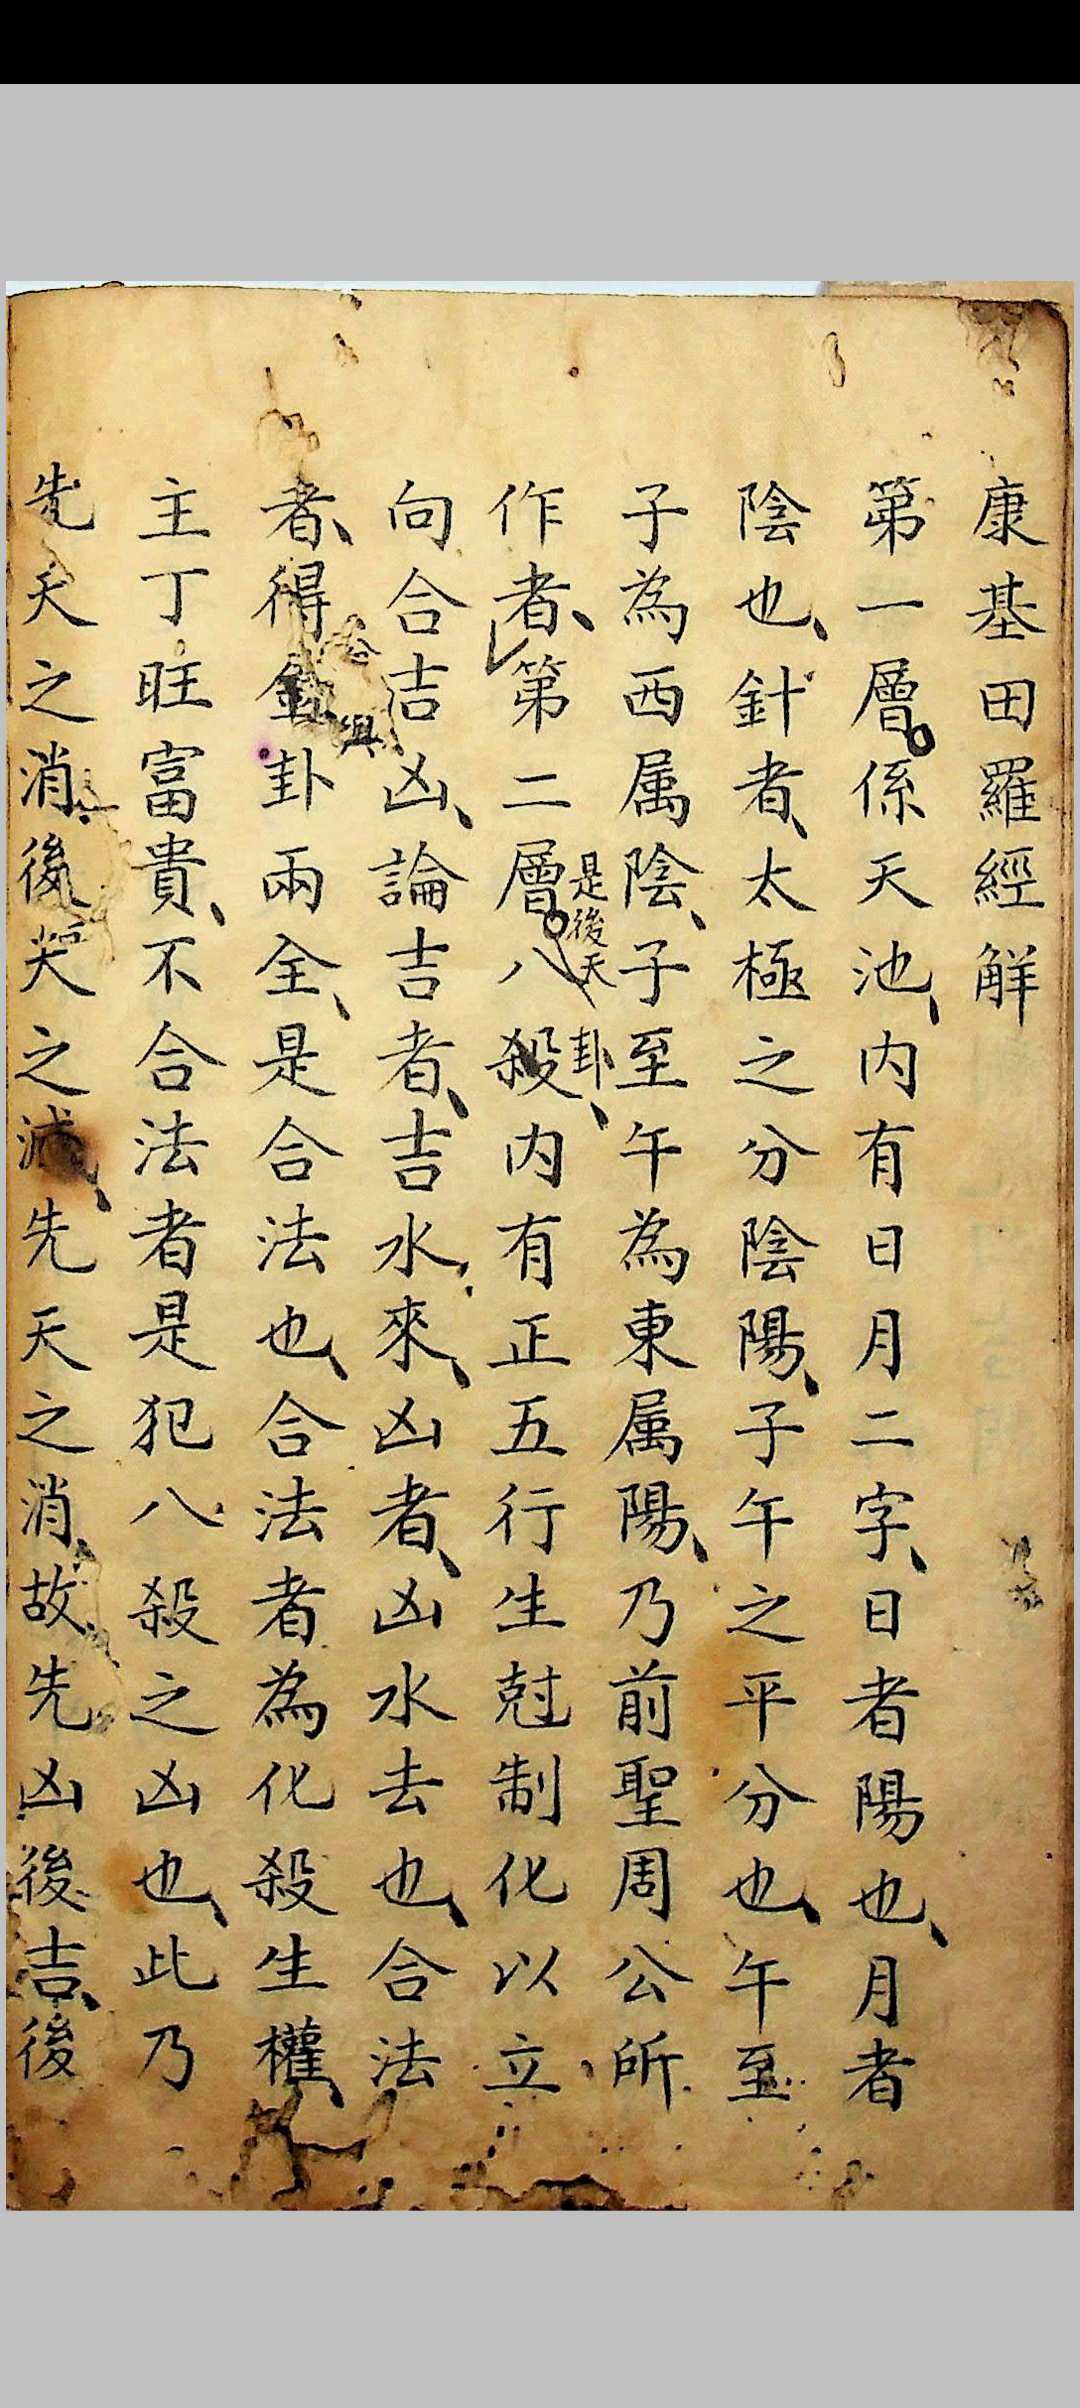 康基田羅經解
第一層係天池、内有日月二字、日者陽也、月者
陰也、針者、太極之分陰陽、子午之平分也、午至
子為西属陰、子至午為東属陽、乃前聖周公所
作者、第二層八殺内有正五行生尅制化以立
是後天卦、
向合吉凶、論吉者、吉水來、凶者、凶水去也、合法
者、得針與卦兩全、是合法也、合法者為化殺生權、
主丁旺富貴、不合法者是犯八殺之凶也、此乃
先天之消後天之滅、先天之消、故先凶後吉、後